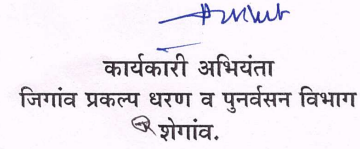 कार्यकारी अभियंता
जिगांव प्रकल्प धरण व पुनर्वसन विभाग
शेगांव.